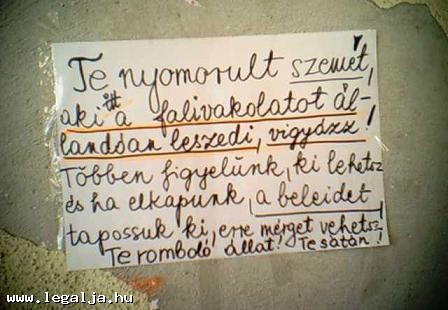 Te nyomorult szemét,
aki itt a falivakolatot ál-
landóan leszedi, vigyázz!
Többen figyelünk, ki lehetsz
és ha elkapunk, a beleidet
tapossuk ki, erre mérget vehetsz.
Te romboló állat! Te sátán!
www.legalja.hu